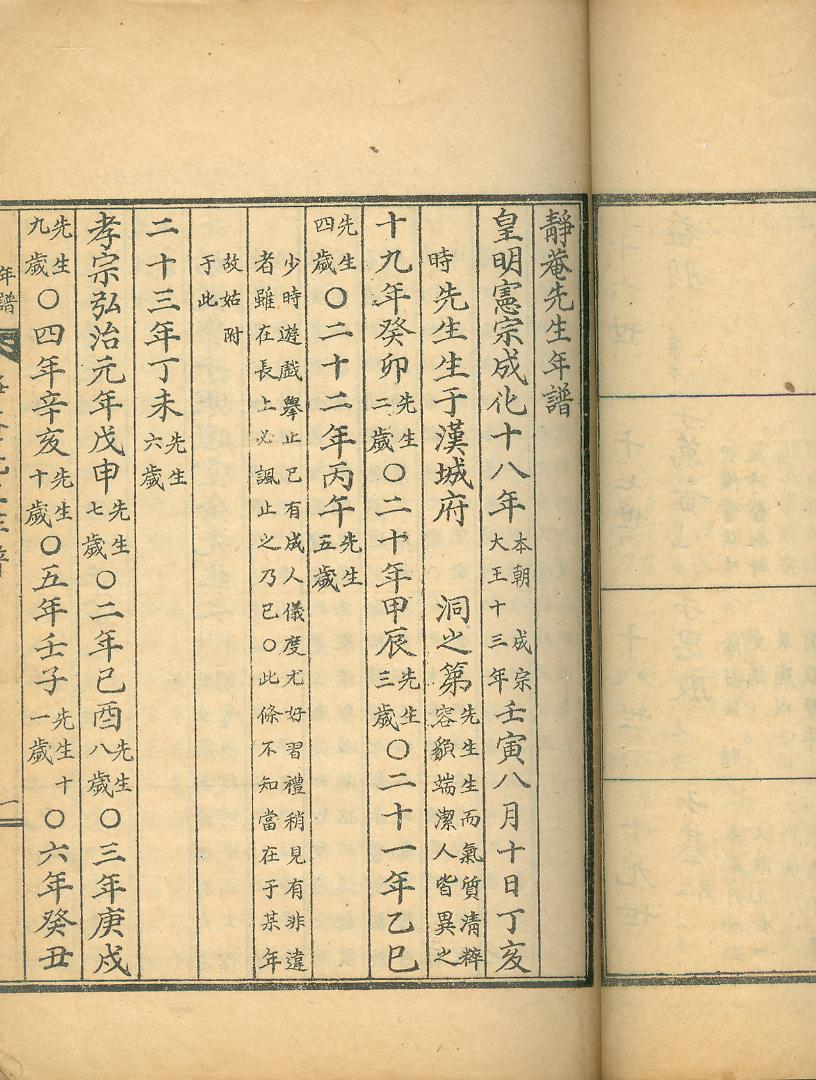 靜菴先生年譜
皇明憲宗成化十八年本朝 成宗大王十三年壬寅八月十日丁亥
時 先生生于漢城府 洞之第先生生而氣質清粹容貌端潔人皆異之
十九年癸卯先生二歲〇二十年甲辰先生三歲〇二十一年乙巳
先生四歲〇二十二年丙午先生五歲
少時遊戲擧止已有成人儀度尤好習禮稍見有非違
者雖在長上必諷止之乃已〇此條不知當在于某年
故姑附
于此
二十三年丁未先生六歲
孝宗弘治元年戊申先生七歲〇二年己酉先生八歲〇三年庚戌
先生九歲〇四年辛亥先生十歲〇五年壬子先生十一歲〇六年癸丑
年譜
一